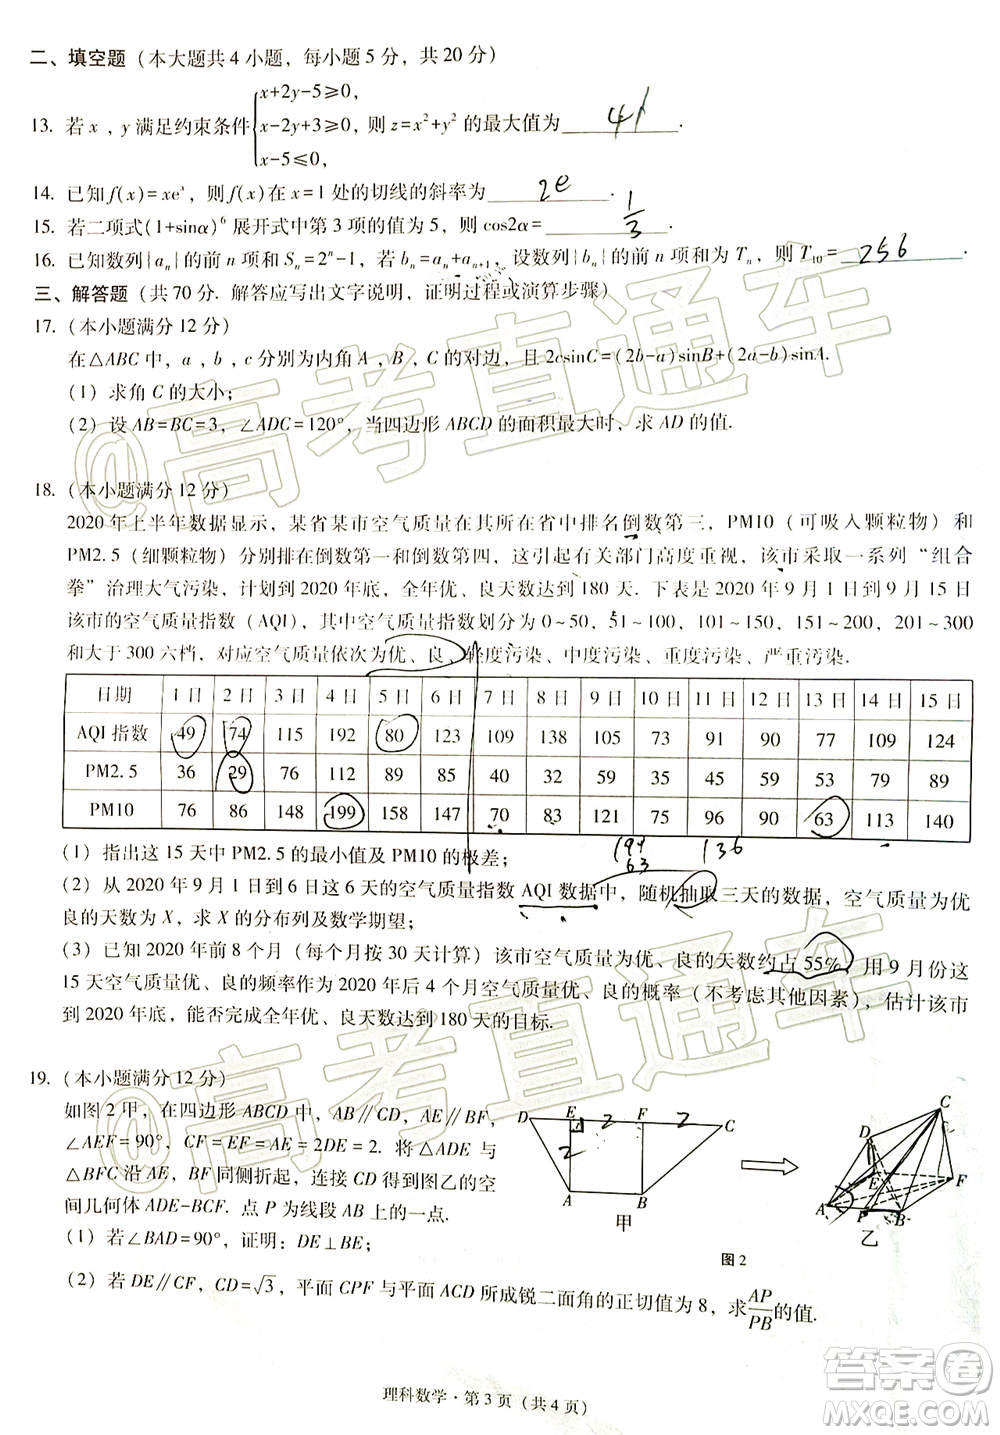 二、填空题（本大题共4小题，每小题5分，共20分）
x+2y-5≥0,
13. 若x，y满足约束条件 x-2y+3≥0, 则z=x²+y²的最大值为 41 .
x-5≤0,
14. 已知f(x)=xeˣ，则f(x)在x=1处的切线的斜率为 2e .
15. 若二项式(1+sinα)⁶展开式中第3项的值为5，则cos2α= 1/3 .
16. 已知数列{aₙ}的前n项和Sₙ=2ⁿ-1，若bₙ=aₙ+aₙ₊₁，设数列{bₙ}的前n项和为Tₙ，则T₁₀= 256 .
三、解答题（共70分. 解答应写出文字说明，证明过程或演算步骤）
17.（本小题满分12分）
在△ABC中，a，b，c分别为内角A，B，C的对边，且2csinC=(2b-a)sinB+(2a-b)sinA.
（1）求角C的大小；
（2）设AB=BC=3，∠ADC=120°，当四边形ABCD的面积最大时，求AD的值.
18.（本小题满分12分）
2020年上半年数据显示，某省某市空气质量在其所在省中排名倒数第三，PM10（可吸入颗粒物）和
PM2.5（细颗粒物）分别排在倒数第一和倒数第四，这引起有关部门高度重视，该市采取一系列“组合
拳”治理大气污染，计划到2020年底，全年优、良天数达到180天. 下表是2020年9月1日到9月15日
该市的空气质量指数（AQI），其中空气质量指数划分为0~50，51~100，101~150，151~200，201~300
和大于300六档，对应空气质量依次为优、良、轻度污染、中度污染、重度污染、严重污染.
日期 1日 2日 3日 4日 5日 6日 7日 8日 9日 10日 11日 12日 13日 14日 15日
AQI指数 49 74 115 192 80 123 109 138 105 73 91 90 77 109 124
PM2.5 36 29 76 112 89 85 40 32 59 35 45 54 53 79 89
PM10 76 86 148 199 158 147 70 83 121 75 96 90 63 113 140
（1）指出这15天中PM2.5的最小值及PM10的极差；
199
63
136
（2）从2020年9月1日到6日这6天的空气质量指数AQI数据中，随机抽取三天的数据，空气质量为优
良的天数为X，求X的分布列及数学期望；
（3）已知2020年前8个月（每个月按30天计算）该市空气质量为优、良的天数约占55%，用9月份这
15天空气质量优、良的频率作为2020年后4个月空气质量优、良的概率（不考虑其他因素），估计该市
到2020年底，能否完成全年优、良天数达到180天的目标.
19.（本小题满分12分）
如图2甲，在四边形ABCD中，AB∥CD，AE∥BF，
∠AEF=90°，CF=EF=AE=2DE=2. 将△ADE与
△BFC沿AE，BF同侧折起，连接CD得到图乙的空
间几何体ADE-BCF. 点P为线段AB上的一点.
（1）若∠BAD=90°，证明：DE⊥BE；
（2）若DE∥CF，CD=√3，平面CPF与平面ACD所成锐二面角的正切值为8，求AP/PB的值.
D E F C
2 2
2
A B
甲
C
D
E F
A P B
乙
图2
理科数学·第3页（共4页）
@高考直通车
@高考直通车
答案卷
MXQE.COM